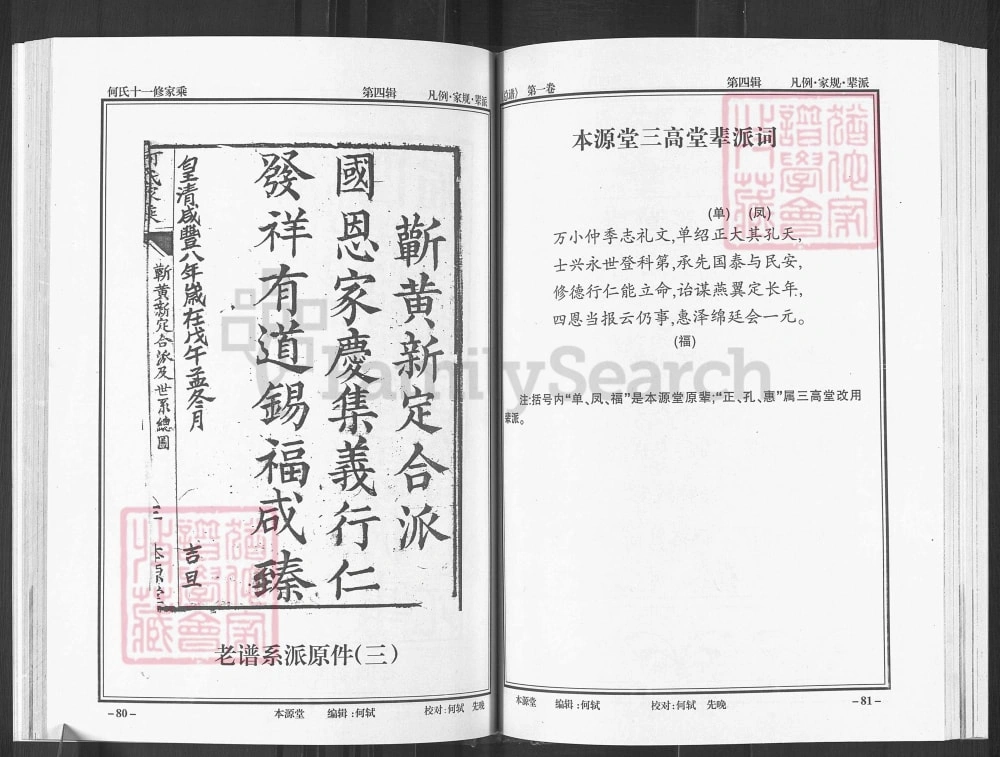 何氏十一修家乘
第四辑 凡例·家规·辈派
蘄黄新定合派
國恩家慶集義行仁
發祥有道錫福咸臻
皇清咸豐八年歲在戊午孟冬月 吉旦
蘄黄新定合派及世系總圖
老谱系派原件(三)
-80-
本源堂 编辑:何轼 校对:何轼 先晚
总谱》 第一卷
第四辑 凡例·家规·辈派
本源堂三高堂辈派词
(单) (凤)
万小仲季志礼文,单绍正大其孔天,
士兴永世登科第,承先国泰与民安,
修德行仁能立命,诒谋燕翼定长年,
四恩当报云仍事,惠泽绵廷会一元。
(福)
注:括号内“单、凤、福”是本源堂原辈;“正、孔、惠”属三高堂改用
辈派。
本源堂 编辑:何轼 校对:何轼 先晚
-81-
FamilySearch